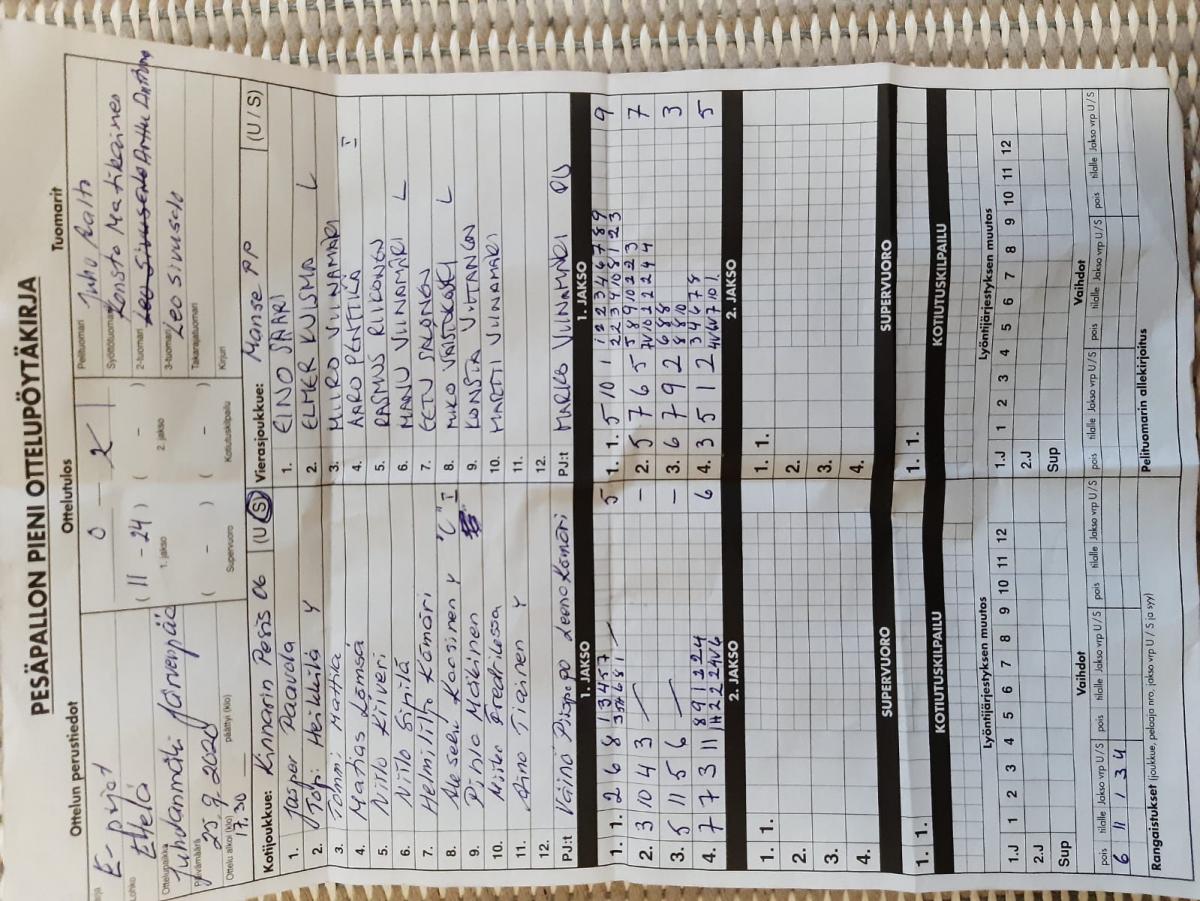 PESÄPALLON PIENI OTTELUPÖYTÄKIRJA
Ottelun perustiedot
Ottelutulos
Tuomarit
E-pojat
Lohko Etelä
Ottelupaikka Juhdanmäki Järvenpää
Päivämäärä 25.9.2020
Ottelu alkoi (klo) 17.30 päättyi (klo)
0 - K 1
(11 - 24) ( - )
1. jakso 2. jakso
( - ) ( - )
Supervuoro Kotiutuskilpailu
Pelituomari Juho Aalto
Syöttötuomari Konsta Matikainen
2-tuomari Leo Simusalo Arttu Anttony
3-tuomari Leo Simusalo
Takarajatuomari
Kirjuri
Kotijoukkue: Kinnarin Pesis 06 (U/S)
1. Jasper Paavola
2. Topi Heikkilä Y
3. Tommi Mattka
4. Matias Lömsä
5. Niilo Kiiveri
6. Niilo Sipilä
7. Helmi Iita Kömäri
8. Akseli Kaasinen Y "C" I
9. Pinla Mäkinen
10. Miiko Fredriksson
11. Aino Tiainen Y
12.
PJ:t Väinö Pitopo Leena Kömäri
Vierasjoukkue: Manse PP (U/S)
1. EINO SAARI
2. ELMER KUISMA L
3. MIIRO VIINAMÄRI
4. AARO PENTTILÄ I
5. RASMUS RIIKONEN
6. MANU VIINAMÄRI L
7. EETU SALONEN
8. NIKO VAISTOKARI L
9. KONSTA VIITANEN
10. MARTTI VIINAMÄRI
11.
12.
PJ:t MARKO VIINAMÄRI
1. JAKSO
1. 1. 2 6 8 1 3 4 5 7 5
2. 3 10 4 3 -
3. 5 11 5 6 -
4. 7 7 3 11 8 9 1 1 2 4 6
1. JAKSO
1. 1. 5 10 1 1 2 2 3 4 6 7 8 9 9
2. 5 7 6 5 5 8 9 10 2 2 3 7
3. 6 7 9 2 6 8 8 3
4. 3 5 1 2 3 4 6 7 8 5
2. JAKSO
1. 1.
2.
3.
4.
2. JAKSO
1. 1.
2.
3.
4.
SUPERVUORO
1. 1.
SUPERVUORO
1. 1.
KOTIUTUSKILPAILU
KOTIUTUSKILPAILU
Lyöntijärjestyksen muutos
1.J 1 2 3 4 5 6 7 8 9 10 11 12
2.J
Sup
Lyöntijärjestyksen muutos
1.J 1 2 3 4 5 6 7 8 9 10 11 12
2.J
Sup
Vaihdot
pois tilalle Jakso vrp U/S pois tilalle Jakso vrp U/S pois tilalle Jakso vrp U/S
6 11 1 3 4
Vaihdot
pois tilalle Jakso vrp U/S pois tilalle Jakso vrp U/S pois tilalle Jakso vrp U/S
Rangaistukset (joukkue, pelaaja nro, jakso vrp U / S ja syy)
Pelituomarin allekirjoitus